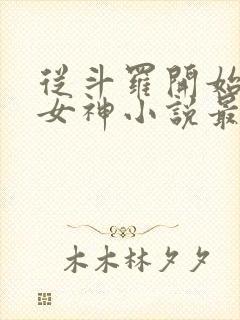 從斗羅開始
女神小說最
木木林夕夕